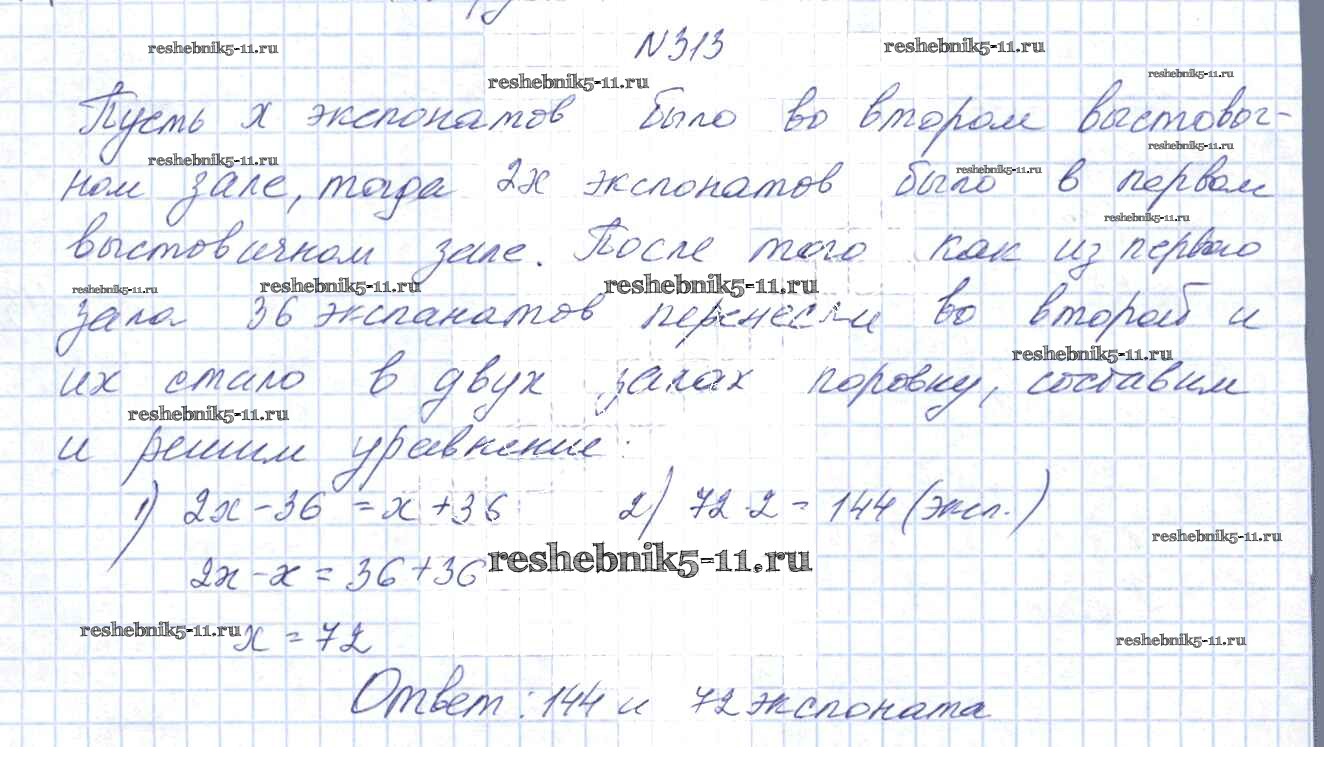 reshebnik5-11.ru
N313
reshebnik5-11.ru
reshebnik5-11.ru
reshebnik5-11.ru
Пусть х экспонатов было во втором выстовоч-
reshebnik5-11.ru
reshebnik5-11.ru
reshebnik5-11.ru
ном зале, тогда 2х экспонатов было в первом
reshebnik5-11.ru
выстовичном зале. После того как из первого
reshebnik5-11.ru
reshebnik5-11.ru
reshebnik5-11.ru
зала 36 экспанатов перенесли во второй и
reshebnik5-11.ru
их стало в двух залах поровну, составим
reshebnik5-11.ru
и решим уравнение:
1) 2х - 36 = х + 36 2) 72 · 2 = 144 (эксп.)
reshebnik5-11.ru
reshebnik5-11.ru
2х - х = 36 + 36
reshebnik5-11.ru
х = 72
reshebnik5-11.ru
Ответ: 144 и 72 экспоната